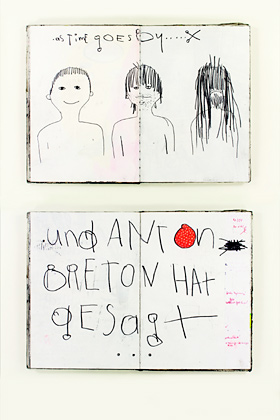 .as TimE gOES By....X
..und ANTOn
BRETON HAt
gESagt
...